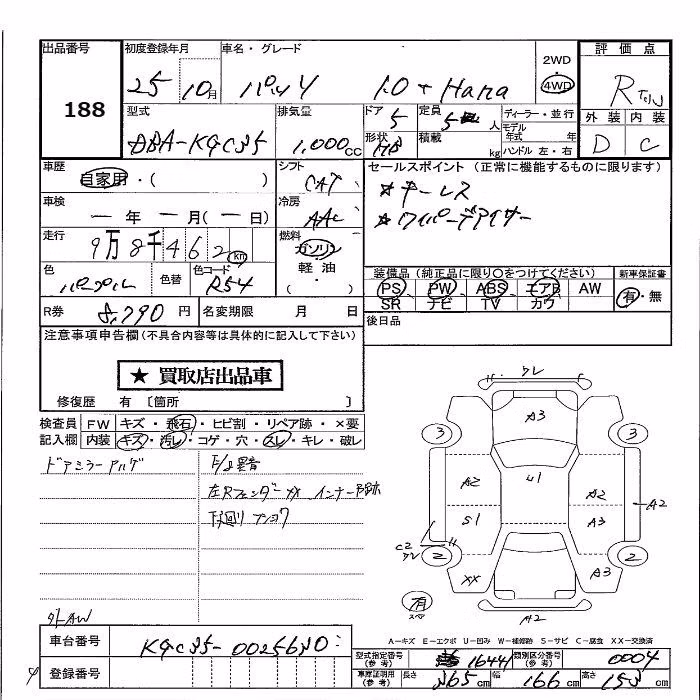 出品番号
188
初度登録年月
25 10月
車名・グレード
パッソ 1.0 + Hana
2WD
4WD
評価点
R
外装 内装
D C
型式
DBA-KGC35
排気量
1,000cc
ドア 5
形状 HB
定員 5 人
積載 kg
ディーラー・並行
モデル年式 年
ハンドル 左・右
車歴
自家用・( )
シフト
CAT
車検
一 年 一 月(一 日)
冷房
AAC
走行
9万8千462km
燃料
ガソリン・
軽油・
( )
色
パープル
色替
色コード
R54
R券 8,790円
名変期限 月 日
セールスポイント(正常に機能するものに限ります)
★キーレス
★ワイパーデアイサー
装備品(純正品に限り○をつけてください)
PS PW ABS エアB AW
SR ナビ TV カワ
新車保証書
有・無
後日品
注意事項申告欄(不具合内容等は具体的に記入して下さい)
★ 買取店出品車
修復歴 有〔箇所 〕
検査員記入欄
FW キズ・飛石・ヒビ割・リペア跡・×要
内装 キズ・汚レ・コゲ・穴・スレ・キレ・破レ
ドアミラーアルゲ
左Rフェンダー XX インナー
下回り
外AW
ワレ
A3
3
3
A2
U1
A2
S1
A3
A2
C2
ワレ
2
2
XX
A3
有
スペア
A2
A-キズ E-エクボ U-凹み W-補修跡 S-サビ C-腐食 XX-交換済
車台番号
KGC35-0025630
登録番号
型式指定番号(参考) 16441
類別区分番号(参考) 0004
車庫証明用(参考) 長さ 365cm 幅 166cm 高さ 153cm